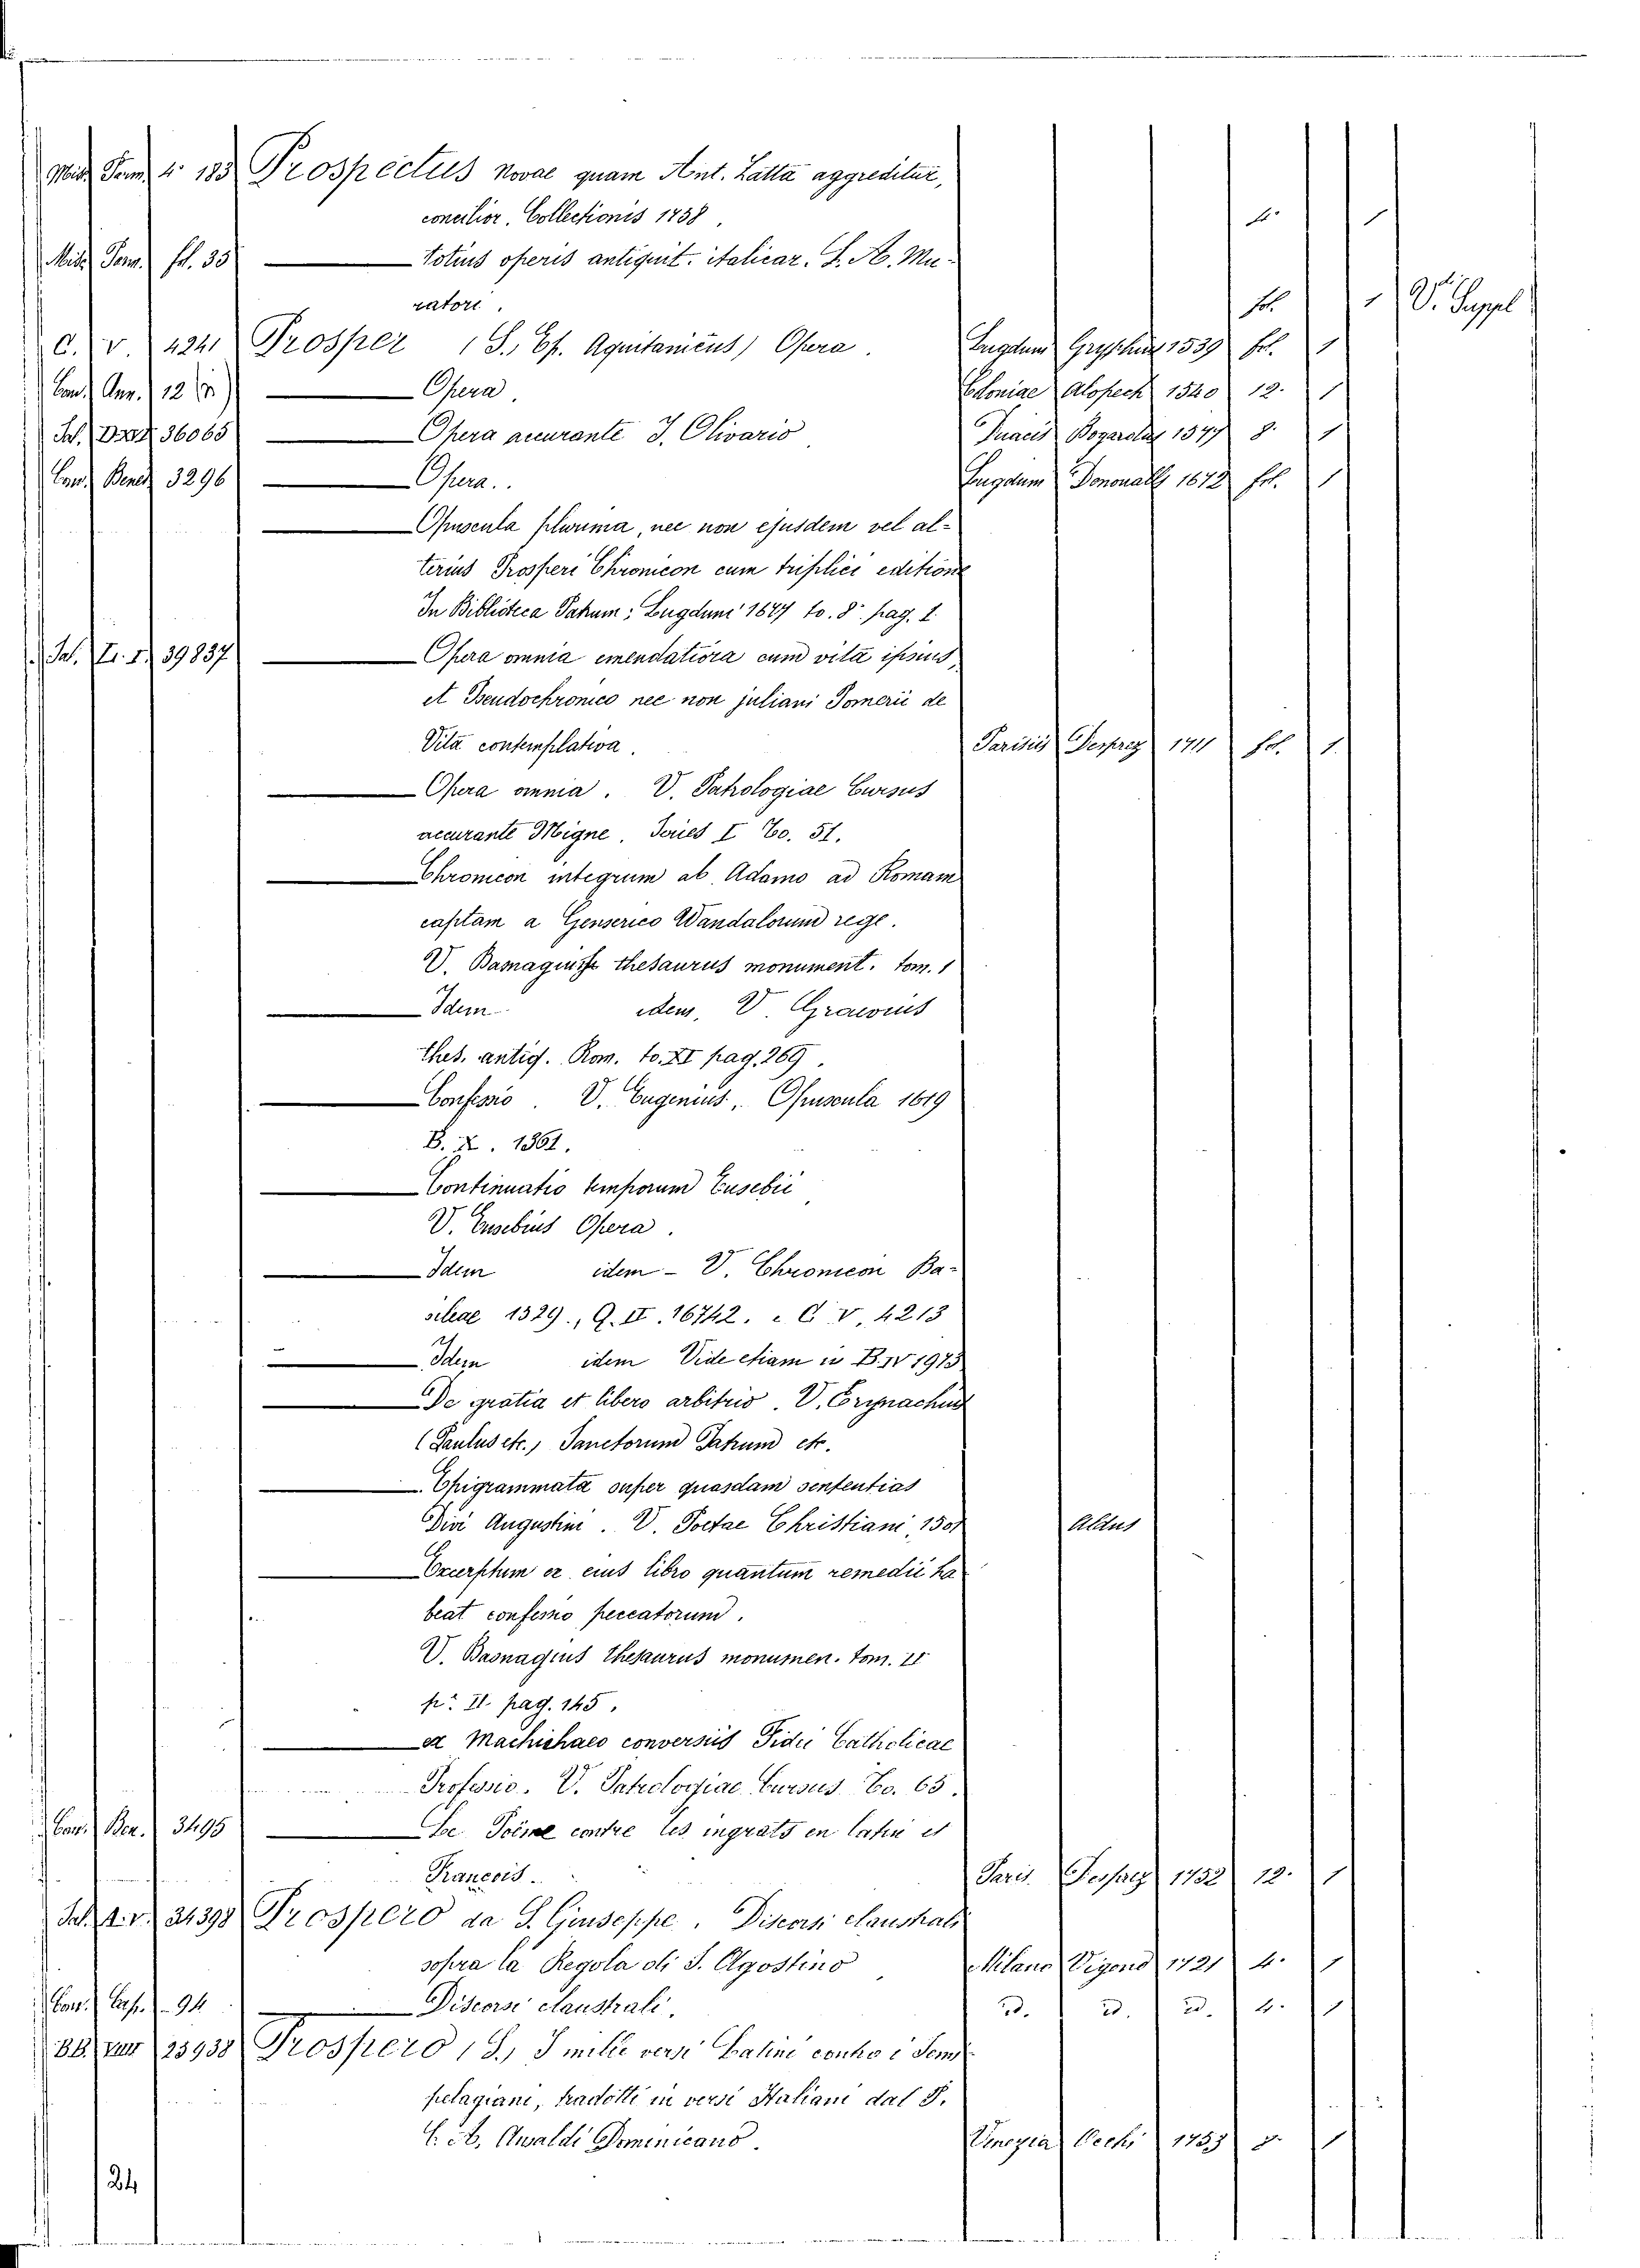 Misc. Tom. 4. 183 Prospectus novae quam Ant. Zatta aggreditur,
concilior. Collectionis 1758. 4. 1
Misc. Tom. fol. 35 — totius operis antiquit. italicar. L. A. Mu-
ratori. fol. 1 V. Suppl
C. V 4241 Prosper (S., Ep. Aquitanicus) Opera. Lugduni Gryphius 1539 fol. 1
Con. Ann. 12 — Opera. Coloniae Alopech 1540 12. 1
36065 — Opera accurante J. Olivario Duacis Bogardus 1577 8. 1
Con. Bened. 3296 — Opera. Lugdum 1672 fol. 1
— Opuscula plurima, nec non ejusdem vel al-
terius Prosperi Chronicon cum triplici editione
In Biblioteca Patrum; Lugduni 1677 to. 8. pag. 1.
39837 — Opera omnia emendatiora cum vita ipsius,
et Pseudochronico nec non juliani Pomerii de
Vita contemplativa. Parisiis Desprez 1711 fol. 1.
— Opera omnia. V. Patrologiae Cursus
accurante Migne. Series I to. 51.
— Chronicon integrum ab Adamo ad Romam
captam a Genserico Wandalorum rege.
V. Basnagius thesaurus monument. tom. 1
— Idem idem, V. Graevius
thes. antiq. Rom. to. XI pag. 269.
— Confessio. V. Eugenius, Opuscula 1619
B. X. 1361.
— Continuatio temporum Eusebii
V. Eusebius Opera.
— Idem idem - V. Chronicon Ba-
sileae 1529., G. II. 16742. e C V. 4213
— Idem idem Vide etiam in B. IV 1973
— De gratia et libero arbitrio. V. Corynachius
(Paulus etc.) Sanctorum Patrum etc.
— Epigrammata super quasdam sententias
Divi Augustini. V. Poetae Christiani, 1501 Aldus
— Excerptum ex eius libro quantum remedii ha
beat confessio peccatorum.
V. Basnagius thesaurus monumen. tom. II
p. II. pag. 145.
— ex Machichaeo conversus Fidei Catholicae
Professio. V. Patrologiae Cursus to. 65.
Con. Ben. 3495 — Le Poëme contre les ingrats en latin et
Francois. Paris. Desprez 1752 12. 1
34398 Prospero da S. Giuseppe. Discorsi claustrali
sopra la Regola di S. Agostino Milano Vigono 1721 4. 1
Con. Cap. 94 — Discorsi claustrali. id. id. id. 4. 1
25938 Prospero (S.) I mille versi latini contro i Semi
pelagiani, tradotti in versi Italiani dal P.
Dominicano. Venezia Occhi 1753 8. 1
24